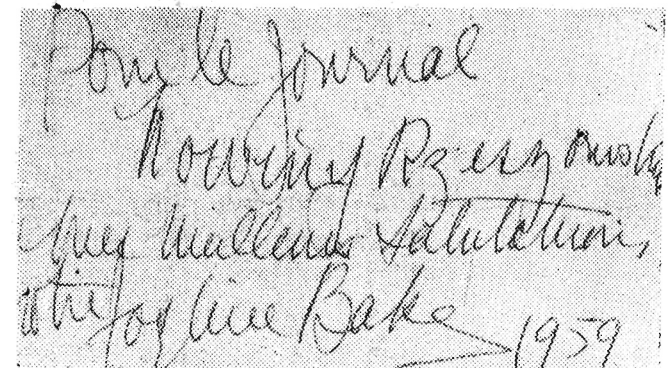 Pour le Journal
Nowiny Rzeszowskie
mes meilleures Salutations,
votre Josephine Baker 1959